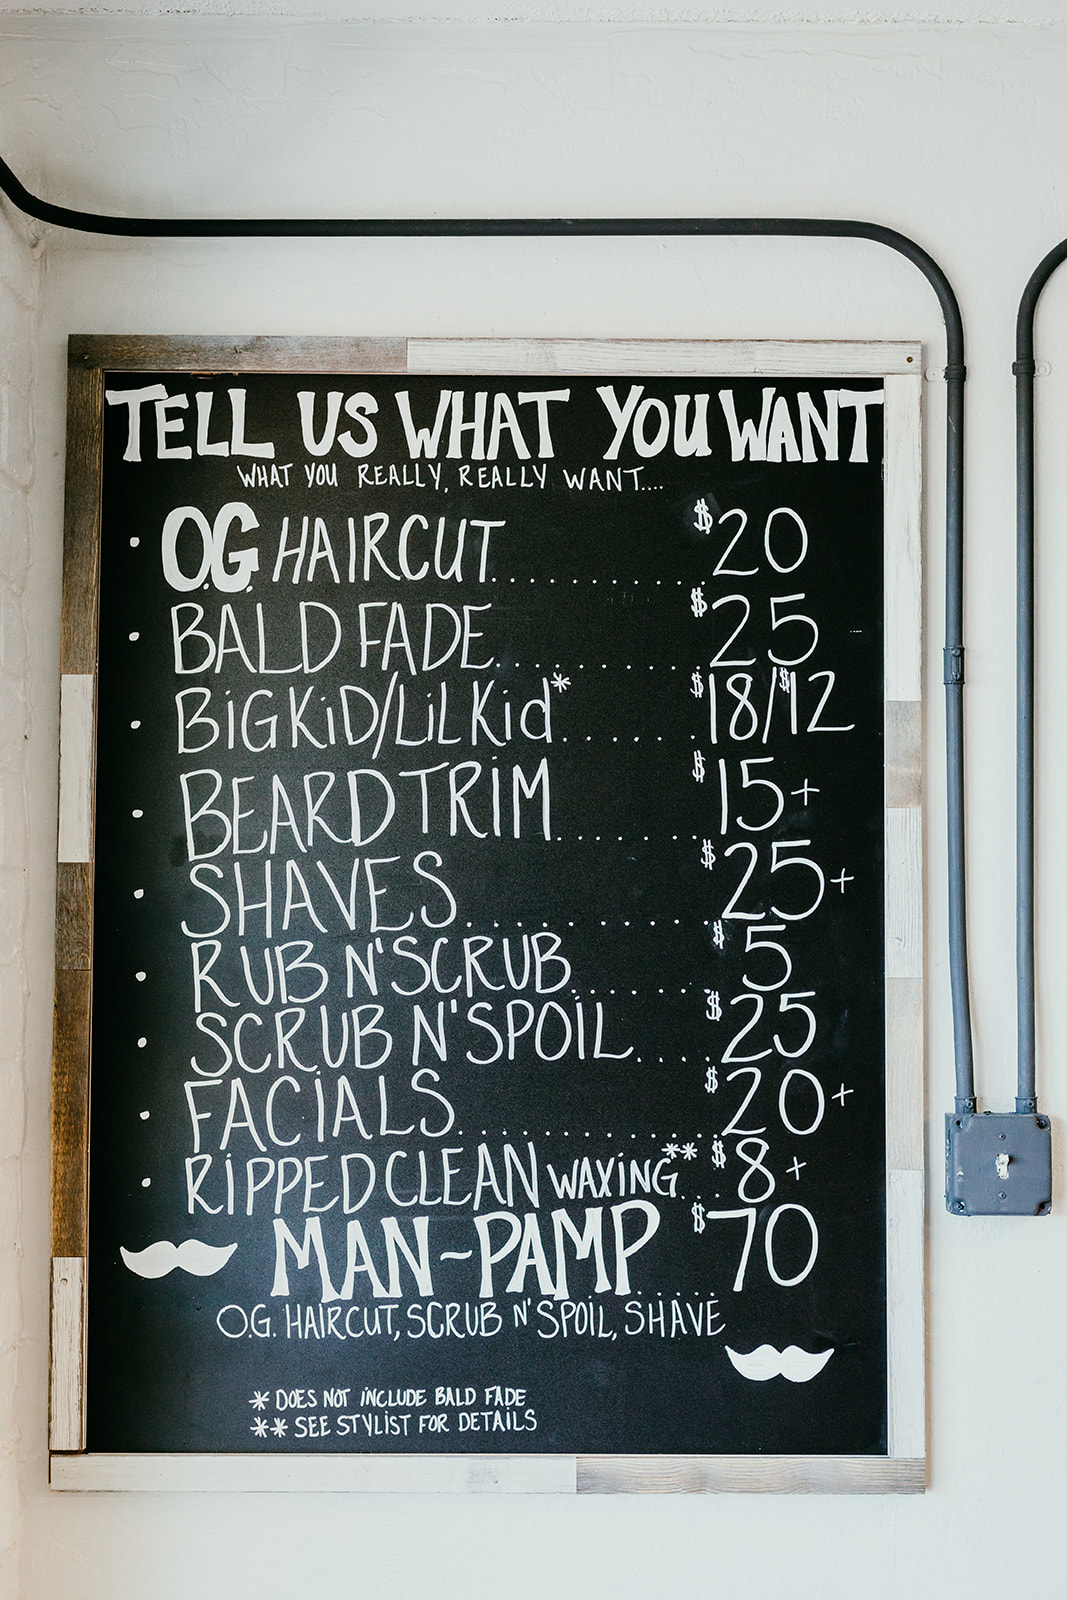 TELL US WHAT YOU WANT
WHAT YOU REALLY, REALLY WANT....
• O.G. HAIRCUT............$20
• BALD FADE............$25
• BiGKiD/LiL Kid*.......$18/$12
• BEARD TRIM.........$15+
• SHAVES............$25+
• RUB N'SCRUB.......$5
• SCRUB N'SPOIL....$25
• FACIALS............$20+
• RIPPED CLEAN WAXING**...$8+
MAN~PAMP.....$70
O.G. HAIRCUT, SCRUB N'SPOIL, SHAVE
* DOES NOT INCLUDE BALD FADE
** SEE STYLIST FOR DETAILS